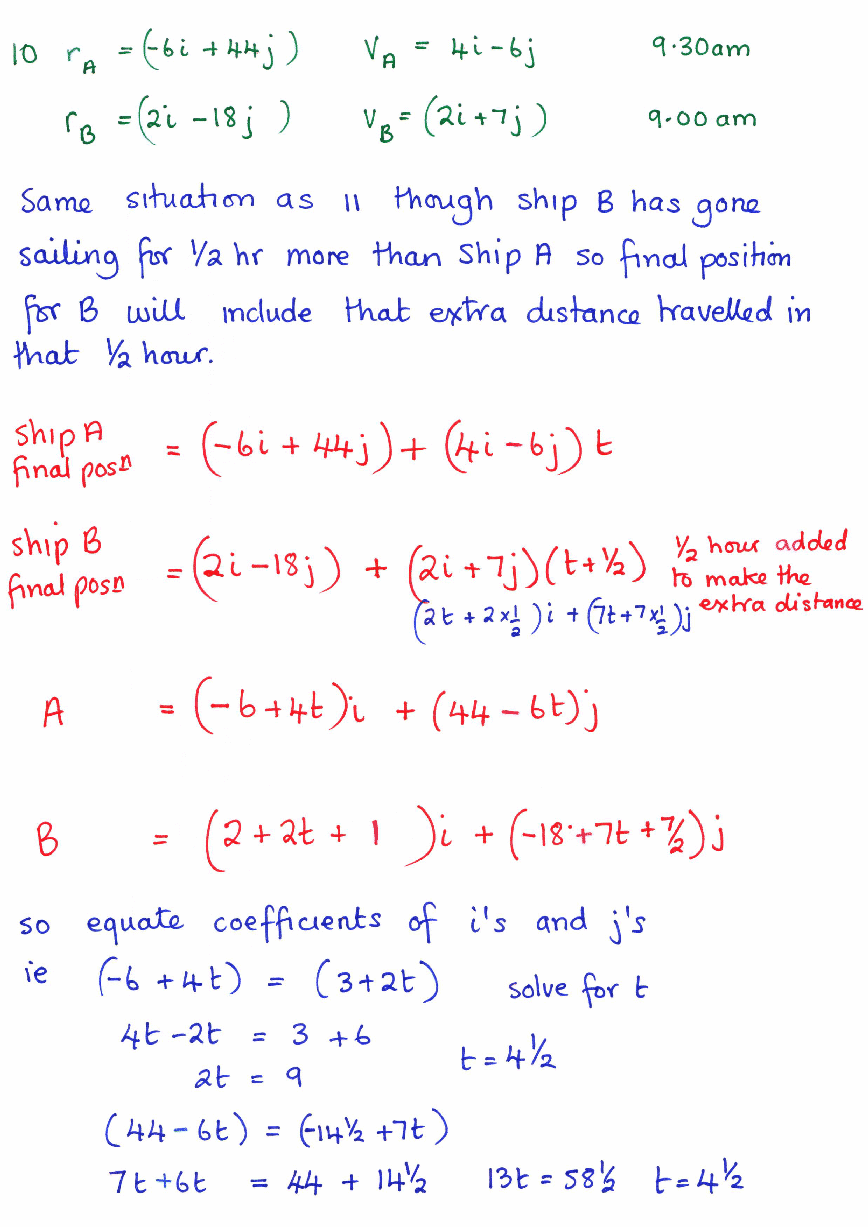 10 r_A = (-6i + 44j) V_A = 4i - 6j 9.30am
r_B = (2i - 18j ) V_B = (2i + 7j) 9.00 am
Same situation as 11 though ship B has gone
sailing for 1/2 hr more than Ship A so final position
for B will include that extra distance travelled in
that 1/2 hour.
ship A
final posn = (-6i + 44j) + (4i - 6j) t
ship B
final posn = (2i - 18j) + (2i + 7j)(t + 1/2) 1/2 hour added
to make the
extra distance
(2t + 2 x 1/2) i + (7t + 7 x 1/2) j
A = (-6 + 4t)i + (44 - 6t)j
B = (2 + 2t + 1 )i + (-18 + 7t + 7/2)j
so equate coefficients of i's and j's
ie (-6 + 4t) = (3 + 2t) solve for t
4t - 2t = 3 + 6
2t = 9 t = 4 1/2
(44 - 6t) = (-14 1/2 + 7t)
7t + 6t = 44 + 14 1/2 13t = 58 1/2 t = 4 1/2